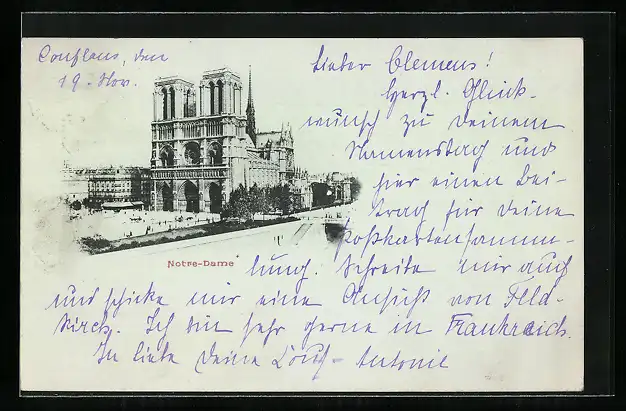 Conflans, den
19. Nov.
Lieber Clemens!
Herzl. Glück-
wunsch zu Deinem
Namenstag und
hier einen Bei-
trag für Deine
Postkartensamm-
Notre-Dame
lung. Schreibe mir auch
und schicke mir eine Ansicht von Feld-
kirch. Ich bin sehr gerne in Frankreich.
In Liebe Deine Antonie